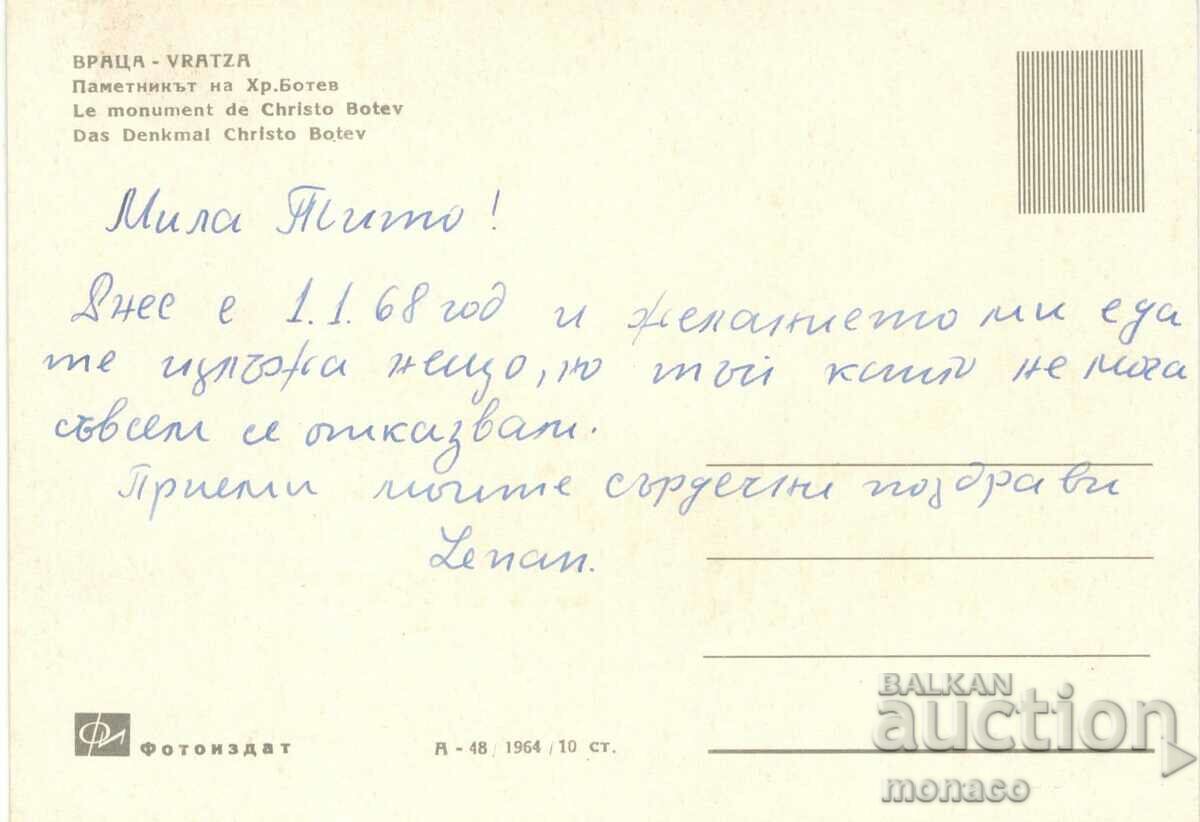 ВРАЦА - VRATZA
Паметникът на Хр.Ботев
Le monument de Christo Botev
Das Denkmal Christo Botev
Мила Тито!
Днес е 1.1.68 год и желанието ми е да
те излъжа нещо, но тъй като не мога
съвсем се отказвам.
Приеми моите сърдечни поздрави
Фотоиздат
А - 48 / 1964 / 10 ст.
BALKAN
auction
monaco